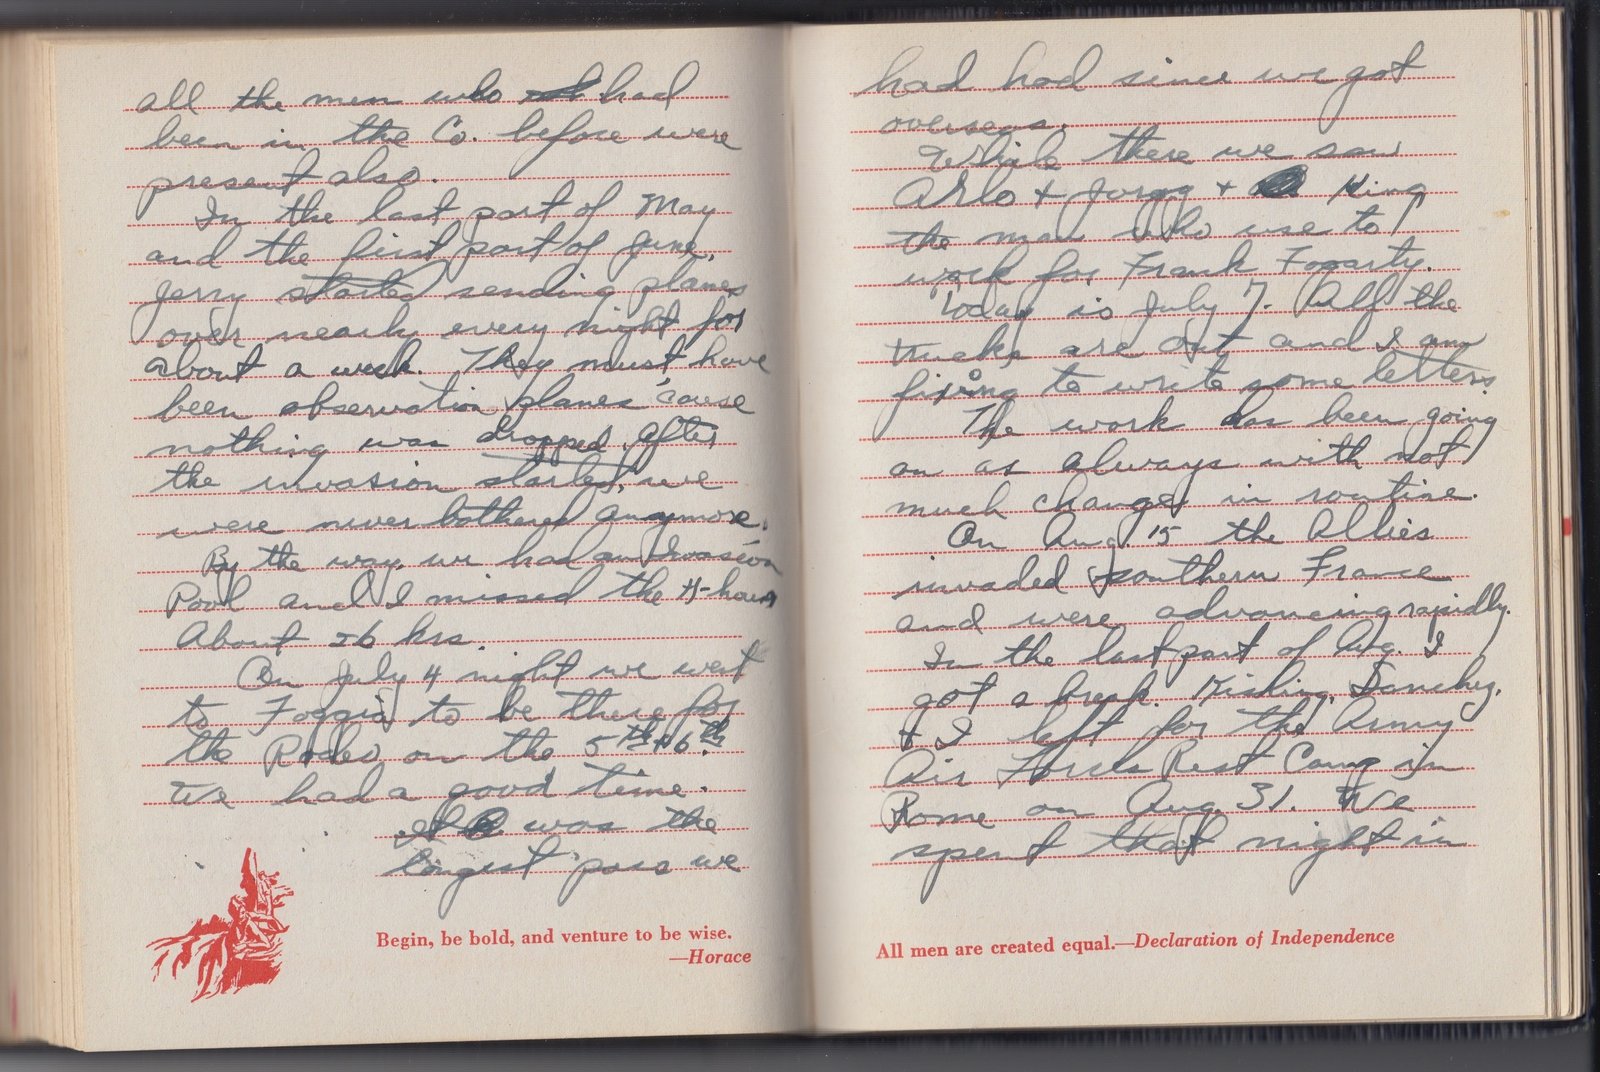 all the men who had
been in the Co. before were
present also.
In the last part of May
and the first part of June,
Jerry started sending planes
over nearly every night for
about a week. They must have
been observation planes 'cause
nothing was dropped. After
the invasion started, we
were never bothered anymore.
By the way, we had an Invasion
Pool and I missed the H-hour
About 26 hrs.
On July 4 night we went
to Foggia to be there for
the Rodeo on the 5th + 6th.
We had a good time.
It was the
longest pass we
Begin, be bold, and venture to be wise.
—Horace
had had since we got
overseas.
While there we saw
Arlo + + King
the man who use to
work for Frank Fogarty.
Today is July 7. All the
trucks are out and I am
fixing to write some letters.
The work has been going
on as always with not
much change in routine.
On Aug 15 the Allies
invaded southern France
and were advancing rapidly.
In the last part of Aug. I
got a break. Kisling, Sanchez,
+ I left for the Army
Air Forces Rest Camp in
Rome on Aug. 31. We
spent that night in
All men are created equal.—Declaration of Independence